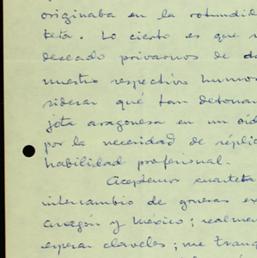 originaba en la rotundid
teta. Lo cierto es que n
deseado privarnos de d
nuestro respectivo humor
siderar qué tan detonan
jota aragonesa en un oíd
por la necesidad de réplic
habilidad profesional.
Aceptemos cuarteta
intercambio de goneras ex
Aragón y México; realmen
esperar claveles; me tranq